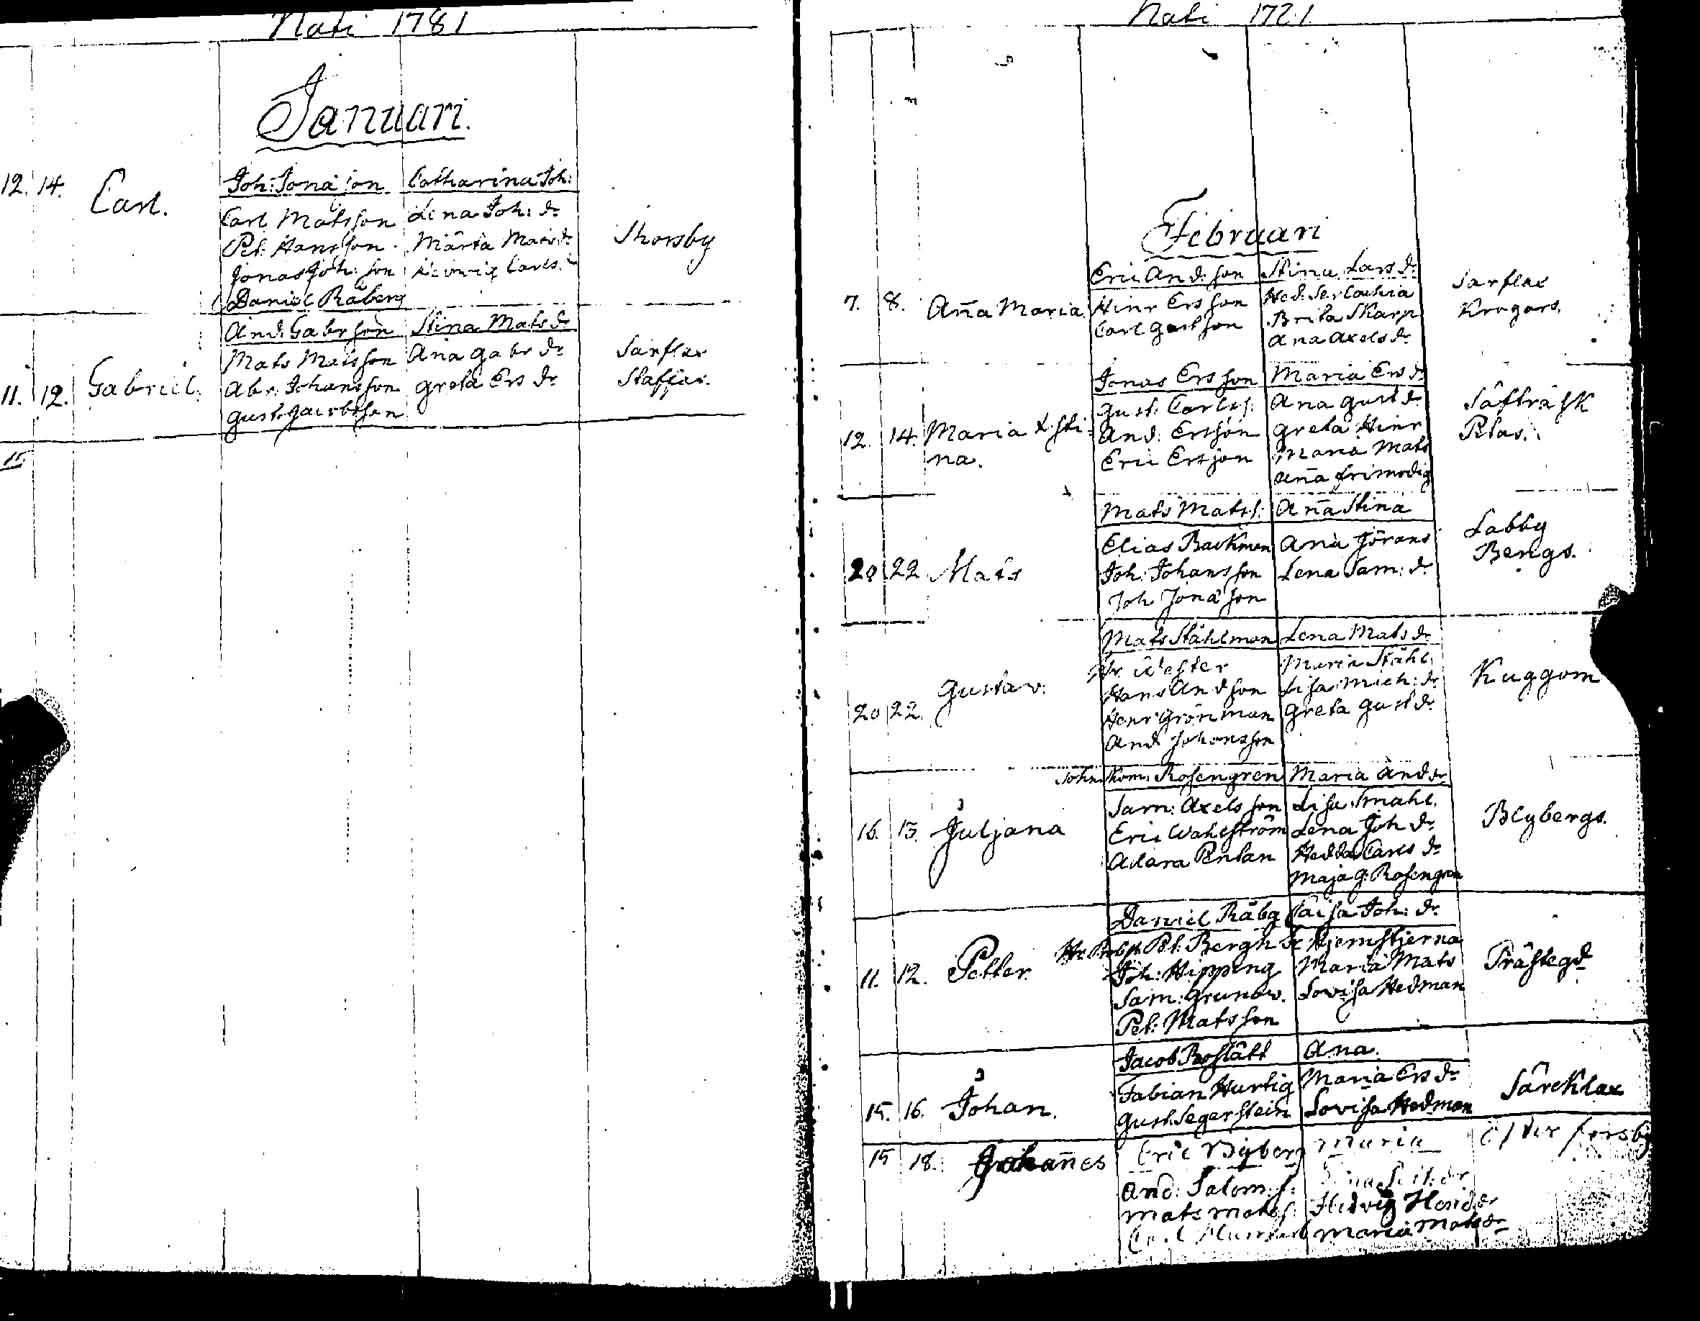 Nati 1781
Januari.
12. 14. Carl.
Joh: Jonasson Catharina Joh:
Carl Matsson Lena Joh: dr
Pet: Hansson. Märta Mats dr
Jonas Joh: son Hedwig Carls.
Daniel Råberg
Thorsby
11. 12. Gabriel.
And: Gabr son Stina Mats dr
Mats Matsson Aña Gabr dr
Abr. Johansson Greta Ers dr
Gust: Jacobsson
Sarflax
Staffas.
Nati 1721
Februari
7. 8. Aña Maria
Eric And: son Stina Lars dr
Hinr Ersson Hed:
Carl Gustson Brita Skarp
Ana Axels dr
Sarflax
Krogars.
12. 14. Maria Xsti
na.
Jonas Ersson Maria Ers dr
Gust: Carls s: Ana Gust dr
And: Ersson Greta Hinr
Eric Ersson Maria Mats
Aña Frimodig
Såfträsk
Pelas.
20 22 Mats
Mats Mats s: Aña Stina
Elias Backman Ana Jörans
Joh: Johansson Lena Sam: dr
Joh Jonasson
Labby
Bengs.
20 22. Gustav.
Mats Ståhlman Lena Mats dr
Wester Maria Ståhl.
Hans Andson Lisa Mich: dr
Henr Grönman Greta Gust dr
And Johansson
Kuggom
16. 13. Juljana
John Kom: Rosengren Maria And dr
Sam: Axelsson Lisa Smahl.
Eric Wahlström Lena Joh dr
Adara Penlan Hedda Carls dr
Maja G: Rosengren
Blybergs.
11. 12. Petter
Daniel Råbg Caisa Joh: dr
Hr Probst Pet: Bergh Fr Hjernstjerna
Joh: Hipping Maria Mats
Sam: Grunow. Lovisa Hedman
Pet: Matsson
Prästegd
15. 16. Johan.
Jacob Rostått Ana.
Fabian Hurtig Maria Ers dr
Gust. Segerstein Lovisa Hedman
Särcklax
15 18. Johañes
Eric Nyberg Maria
And: Salom: s:
Mats Mats s: Hedvig Hend dr
Maria Mats dr